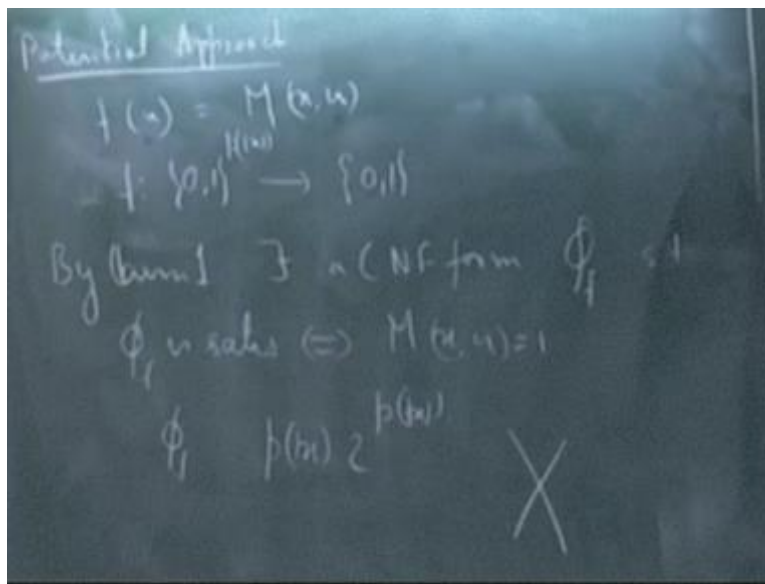 Potential Approach
f(x) = M(x,u)
f: {0,1}^p(|x|) → {0,1}
By Claim 1 ∃ a CNF form ϕ_f s.t
ϕ_f is satis ⇔ M(x,u)=1
ϕ_f p(|x|) 2^p(|x|)
X